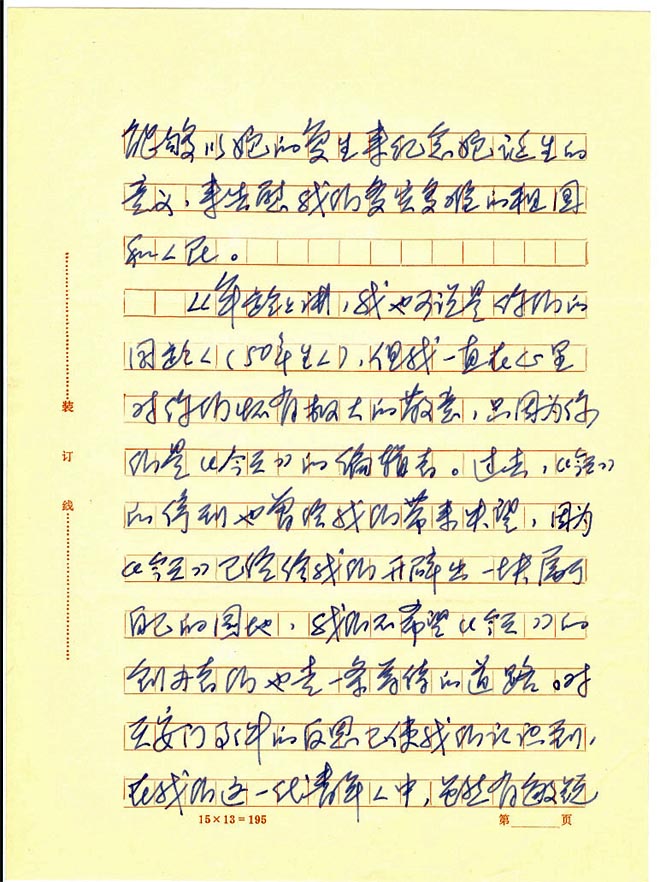 能够以她的复生来纪念她诞生的
意义，来告慰我们多灾多难的祖国
和人民。
从年龄上讲，我也可说是你们的
同龄人（50年生人），但我一直在心里
对你们怀有极大的敬意，只因为你
们是《今天》的编辑者。过去，《今天》
的停刊也曾给我们带来失望，因为
《今天》已经给我们开辟出一块属于
自己的园地，我们不希望《今天》的
创办者们也走一条的道路。对
天安门事件的反思已使我们认识到，
在我们这一代青年人中，虽然有敏锐
装
订
线
15×13=195
第 页